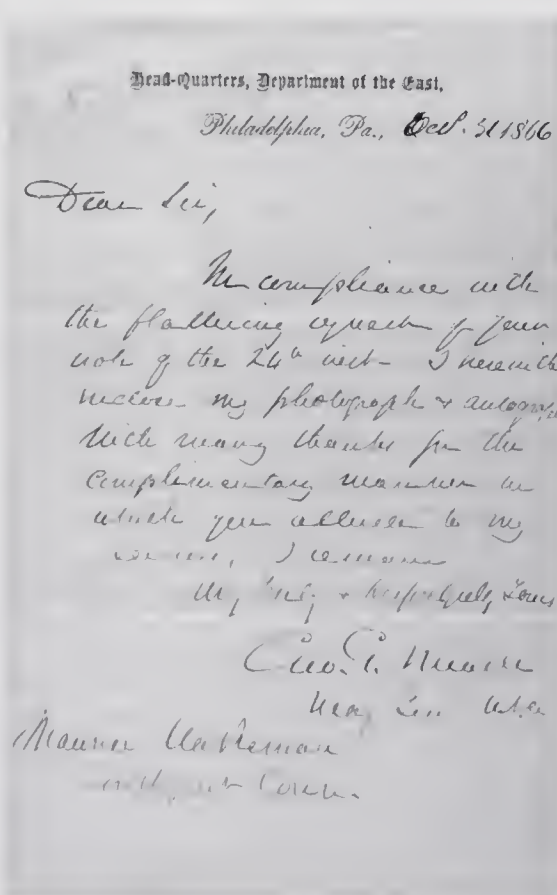 Head-Quarters, Department of the East,
Philadelphia, Pa., Oct. 31 1866
Dear Sir,
In compliance with
the flattering request of your
note of the 24th inst - I herewith
inclose my photograph & autograph
With many thanks for the
complimentary manner in
which you allude to my
I remain
& respectfully Yours
Geo. G. Meade
Maj Gen USA
Maurice
Conn.